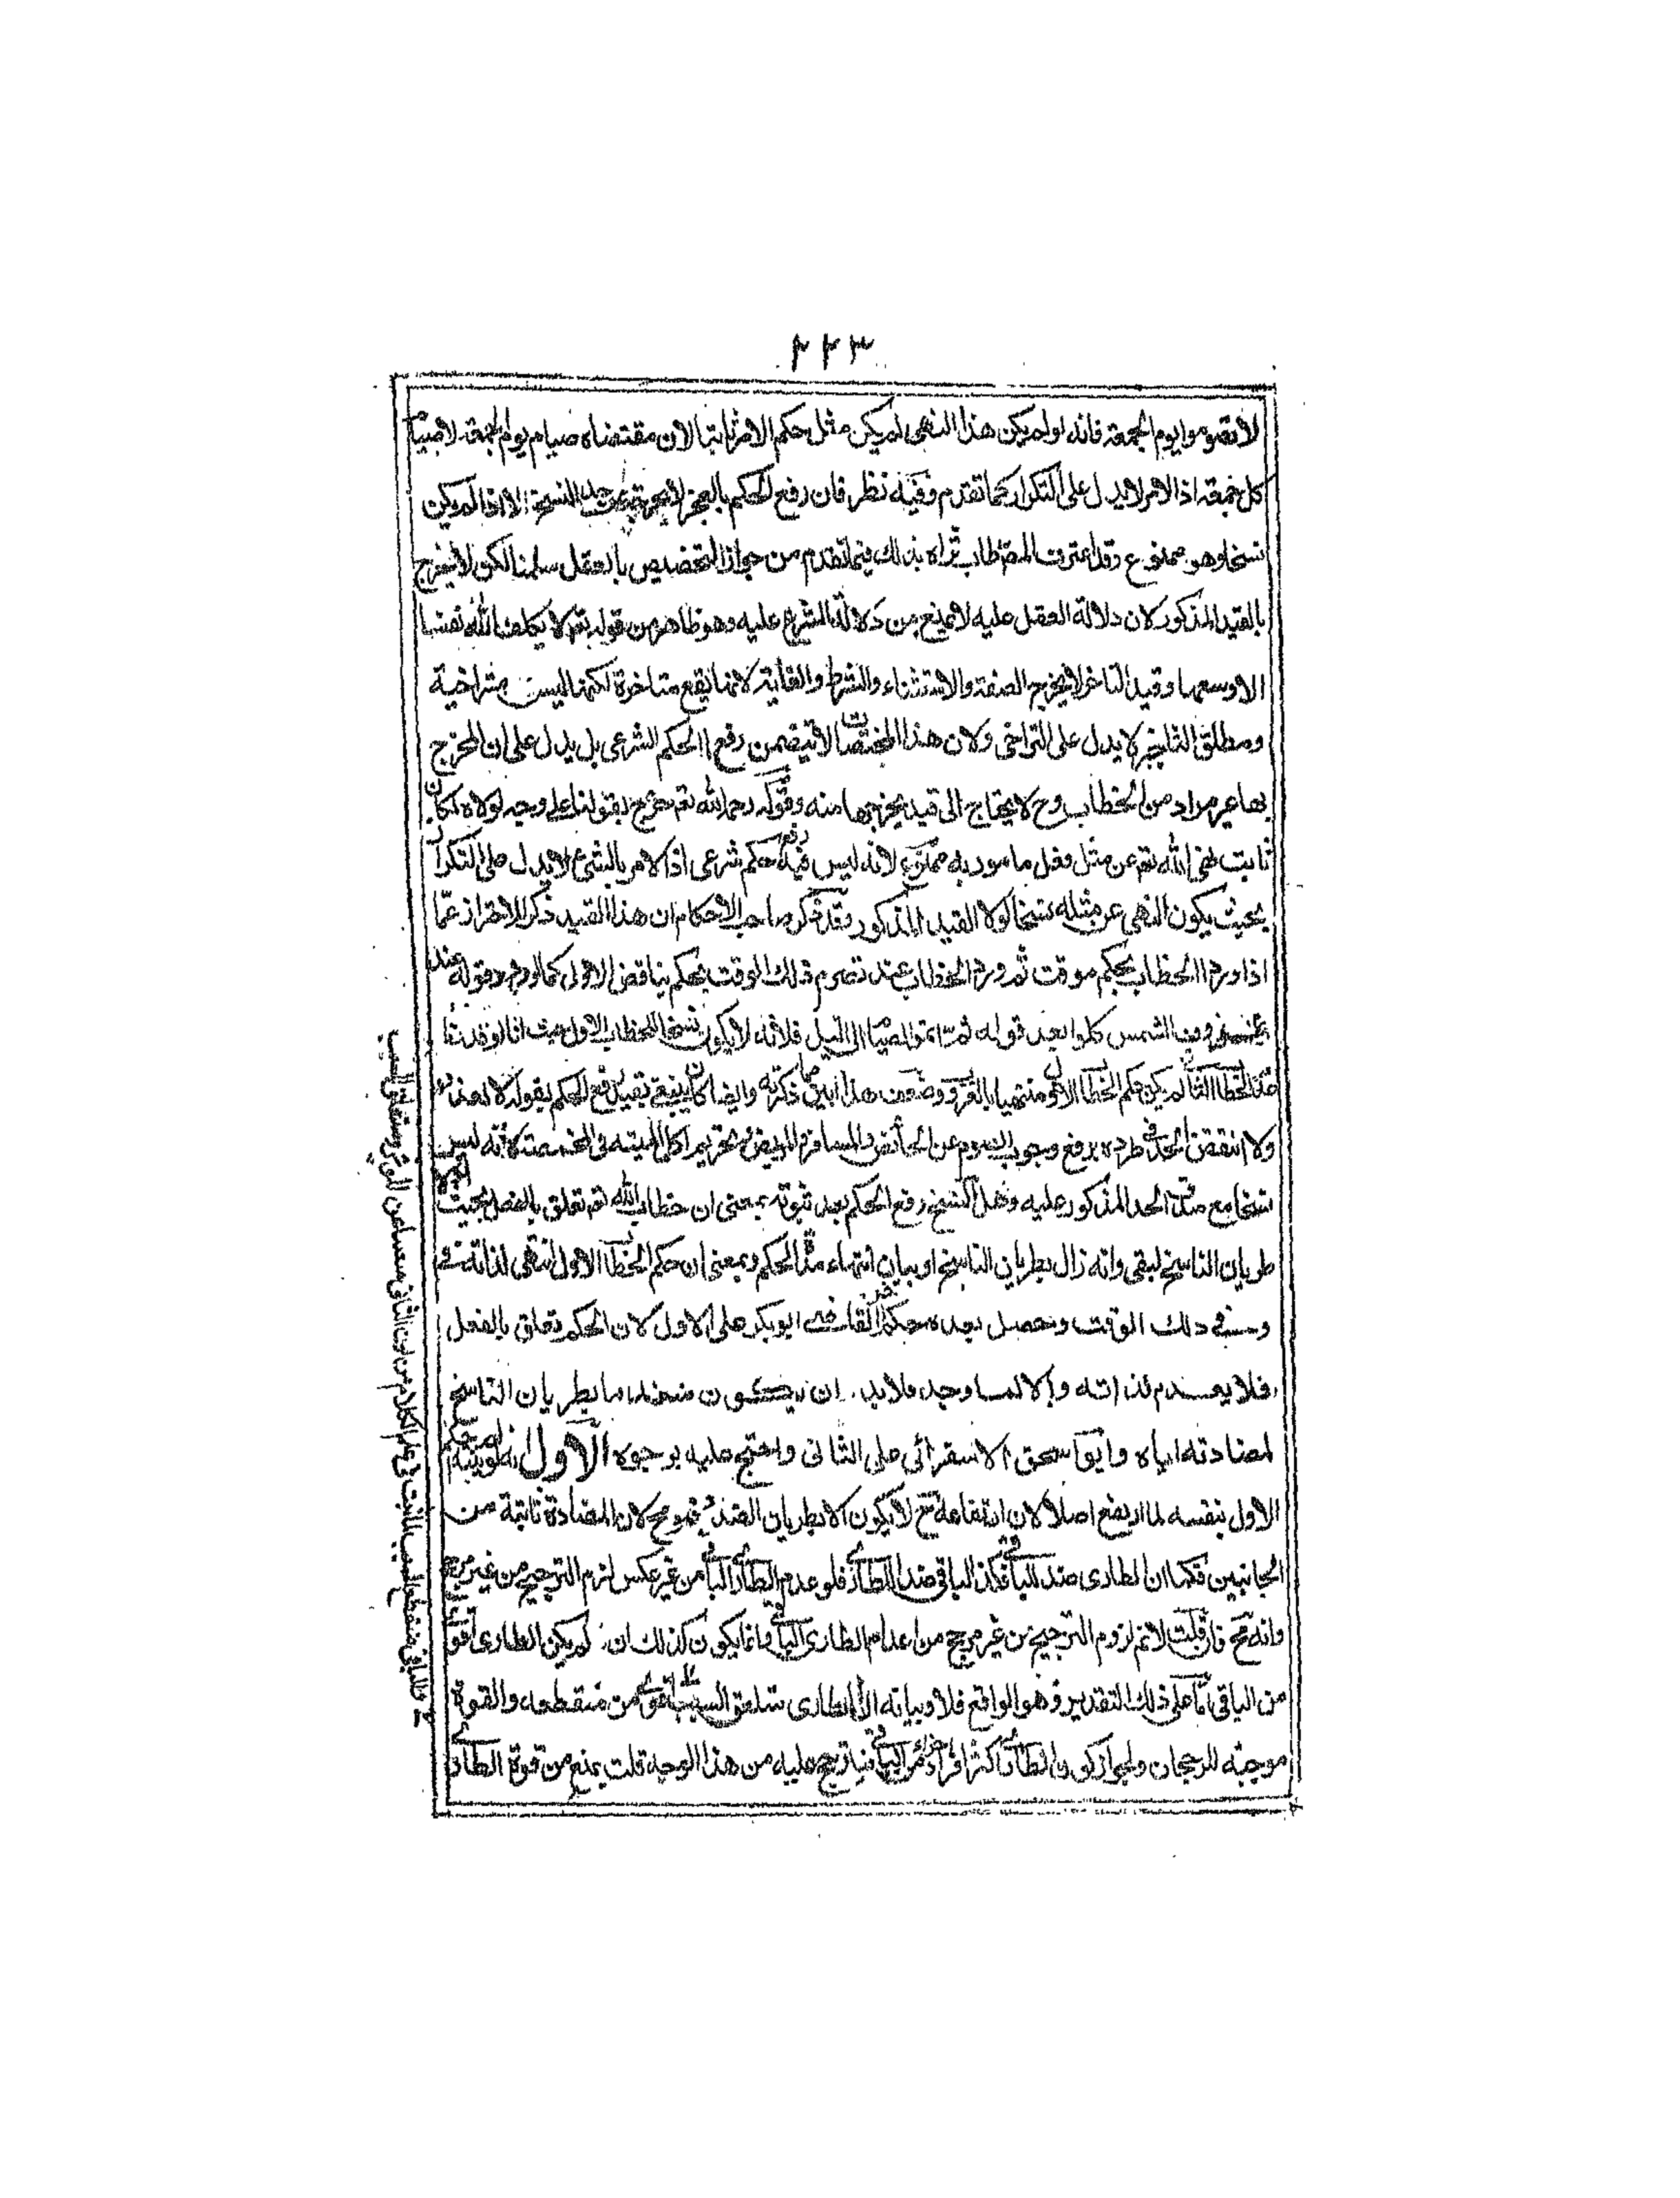 ٢٢٣
لا تصوموا يوم الجمعة فانه لو لم يكن هذا النهى لم يكن مثل حكم الامر ثابتا لان مقتضاه صيام يوم الجمعة لا صيام
كل جمعة اذ الامر لا يدل على التكرار كما تقدم وفيه نظر فان رفع الحكم بالعجز لا يخرج عن حد النسخ الا اذا لم يكن
نسخا وهو ممنوع وقد اعترف المص طاب ثراه بذلك فيما تقدم من جواز التخصيص بالعقل سلمنا لكن لا يخرج
بالقيد المذكور لان دلالة العقل عليه لا تمنع من دلالة الشرع عليه وهو ظاهر من قوله تع لا يكلف الله نفسا
الا وسعها وقيد التاخر لا يخرج الصفة والاستثناء والشرط والغاية لانها يقع متاخرة لكنها ليست متراخية
ومطلق التاخير لا يدل على التراخى ولان هذا المخصصات لا يتضمن رفع الحكم الشرعى بل يدل على ان المخرج
بها غير مراد من الخطاب وح لا يحتاج الى قيد يخرجها منه وقوله رحمه الله تع يخرج بقولنا على وجه لولاه لكان
ثابتا نهى الله تع عن مثل فعل مامور به ممنوع لانه ليس فيه رفع حكم شرعى اذ الامر بالشئ لا يدل على التكرار
بحيث يكون النهى عن مثله نسخا لولا القيد المذكور وقد ذكر صاحب الاحكام ان هذا القيد ذكر للاحتراز عما
اذا ورد الخطاب بحكم موقت ثم ورد الخطاب عند تصرم ذلك الوقت بحكم يناقض الاول كما لو ورد قوله عند
غروب الشمس كلوا بعد قوله ثم اتموا الصيام الى الليل فلانه لا يكون نسخا للخطاب الاول حيث انا لو قدرنا
الخطاب الثانى لم يكن حكم الخطاب الاول منتهيا بالغروب وضعف هذا بين مما ذكرته وايضا كان ينبغى تقييد رفع الحكم بقوله لا لعذر
ولا انتقض الحد فى طرده برفع وجوب الصوم عن الحائض والمسافر والمريض وتحريم اكل الميته فى المخمصة لانه ليس
نسخا مع صدق الحد المذكور عليه وهل النسخ رفع الحكم بعد ثبوته بمعنى ان خطاب الله تع تعلق بالفعل بحيث لولا
طريان الناسخ لبقى وانه زال بطريان الناسخ او بيان انتهاء مدة الحكم وبمعنى ان حكم الخطاب الاول انتهى لذاته
فى ذلك الوقت وحصل بعده حكم اخر القاضى ابو بكر على الاول لان الحكم تعلق بالفعل
فلا يعدم لذاته والا لما وجد فلا بد ان يكون منعدما بطريان الناسخ
لمضادته اياه وابو اسحق الاسفرائى على الثانى واحتج عليه بوجوه الاول انه لو لم ينته حكم
الاول بنفسه لما ارتفع اصلا لان ارتفاعه ح لا يكون الا بطريان الضد وهو مح لان المضادة ثابتة من
الجانبين فكما ان الطارى ضد للباقى فكذا الباقى ضد للطارى فلو عدم الطارى الباقى من غير عكس لزم الترجيح من غير مرجح
وانه مح فان قلت لا نم لزوم الترجيح من غير مرجح من اعدام الطارى الباقى وانما يكون كذلك ان لم يكن الطارى اقوى
من الباقى اما على ذلك التقدير وهو الواقع فلا وبيانه ان الطارى متعلق السبب اقوى من منقطعه والقوة
موجبة للرجحان ولجواز كون الطارى اكثر افرادا من الباقى فيترجح عليه من هذا الوجه قلت يمنع من قوة الطارى